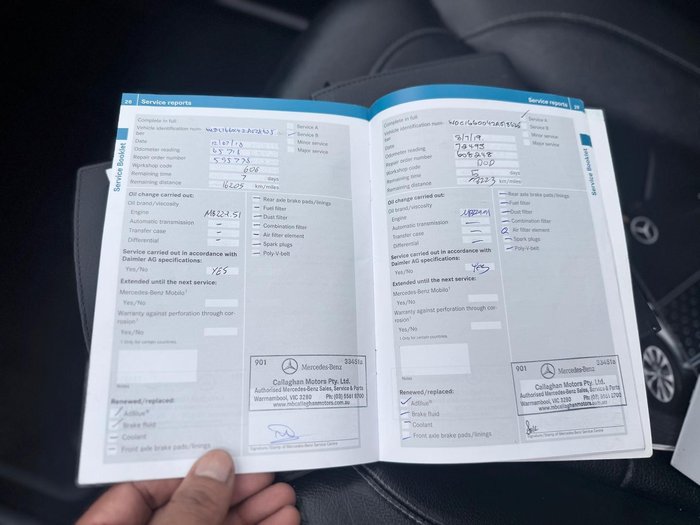 28 Service reports
Service Booklet
Complete in full:
Vehicle identification num-
ber
Date
Odometer reading 65718
Repair order number 595778
Workshop code 606
Remaining time 7 days
Remaining distance 16205 km/miles
Service A
Service B
Minor service
Major service
Oil change carried out:
Oil brand/viscosity
Engine MB229.51
Automatic transmission
Transfer case
Differential
Service carried out in accordance with
Daimler AG specifications:
Yes/No YES
Extended until the next service:
Mercedes-Benz Mobilo¹
Yes/No
Warranty against perforation through cor-
rosion¹
Yes/No
¹ Only for certain countries.
Notes
Renewed/replaced:
AdBlue®
Brake fluid
Coolant
Front axle brake pads/linings
Rear axle brake pads/linings
Fuel filter
Dust filter
Combination filter
Air filter element
Spark plugs
Poly-V-belt
901 Mercedes-Benz 33451a
Callaghan Motors Pty. Ltd.
Authorised Mercedes-Benz Sales, Service & Parts
Warrnambool, VIC 3280 Ph: (03) 5561 8700
www.mbcallaghanmotors.com.au
Signature/Stamp of Mercedes-Benz Service Centre
Service reports 29
Service Booklet
Complete in full:
Vehicle identification num-
ber
Date 3/7/19
Odometer reading 72493
Repair order number 608248
Workshop code
Remaining time 5 days
Remaining distance km/miles
Service A
Service B
Minor service
Major service
Oil change carried out:
Oil brand/viscosity
Engine
Automatic transmission
Transfer case
Differential
Service carried out in accordance with
Daimler AG specifications:
Yes/No Yes
Extended until the next service:
Mercedes-Benz Mobilo¹
Yes/No
Warranty against perforation through cor-
rosion¹
Yes/No
¹ Only for certain countries.
Notes
Renewed/replaced:
AdBlue®
Brake fluid
Coolant
Front axle brake pads/linings
Rear axle brake pads/linings
Fuel filter
Dust filter
Combination filter
Air filter element
Spark plugs
Poly-V-belt
901 Mercedes-Benz 33451a
Callaghan Motors Pty. Ltd.
Authorised Mercedes-Benz Sales, Service & Parts
Warrnambool, VIC 3280 Ph: (03) 5561 8700
www.mbcallaghanmotors.com.au
Signature/Stamp of Mercedes-Benz Service Centre